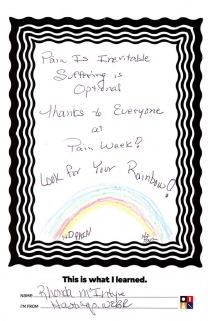 Pain Is Inevitable
Suffering is
Optional
Thanks to Everyone
at
Pain Week!
Look for Your Rainbow!
NO PAIN
This is what I learned.
NAME Rhonda McIntyre
I'M FROM Hastings, NEBR